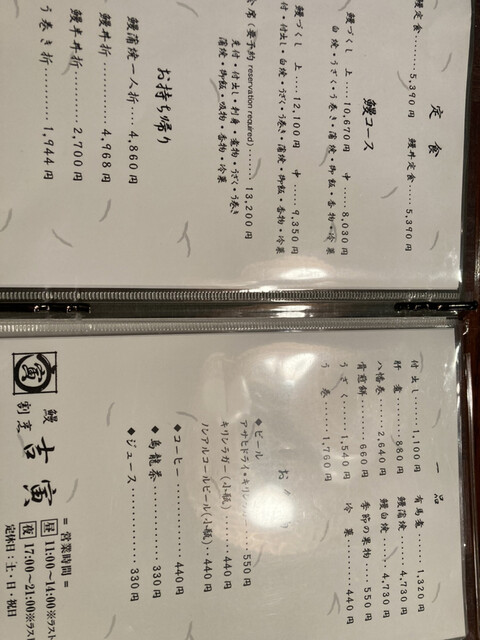 定食
鰻定食‥‥‥5,390円 鰻丼定食‥‥‥5,390円
鰻コース
鰻づくし 上 ‥‥10,670円 中 ‥‥‥8,030円
白焼・うざく・う巻き・蒲焼・御飯・香物・冷菓
鰻づくし 上‥‥12,100円 中‥‥‥9,350円
付・付出し・白焼・うざく・う巻き・蒲焼・御飯・香物・冷菓
会席(要予約 reservation required)‥‥‥‥13,200円
付・付出し・刺身・煮物・うざく・う巻き
蒲焼・御飯・吸物・香物・冷菓
お持ち帰り
鰻蒲焼一人折‥‥4,860円
鰻丼折‥‥‥‥‥4,968円
鰻半丼折‥‥‥‥2,700円
う巻き折‥‥‥‥1,944円
一品
付出し‥‥‥1,100円 有馬煮‥‥‥‥1,320円
肝煮‥‥‥‥880円 鰻蒲焼‥‥‥‥4,730円
八幡巻‥‥‥2,640円 鰻白焼‥‥‥‥4,730円
骨煎餅‥‥‥‥660円 季節の果物‥‥‥550円
うざく‥‥‥1,540円 冷菓‥‥‥‥‥440円
う巻‥‥‥‥1,760円
◆ビール
アサヒドライ・キリンラガー‥‥550円
キリンラガー(小瓶)‥‥‥‥440円
ノンアルコールビール(小瓶)‥440円
◆コーヒー‥‥‥‥‥‥‥440円
◆烏龍茶‥‥‥‥‥‥‥‥330円
◆ジュース‥‥‥‥‥‥‥330円
鰻
割烹
吉寅
= 営業時間 =
昼 11:00〜14:00※ラスト
夜 17:00〜21:00※ラスト
定休日:土・日・祝日